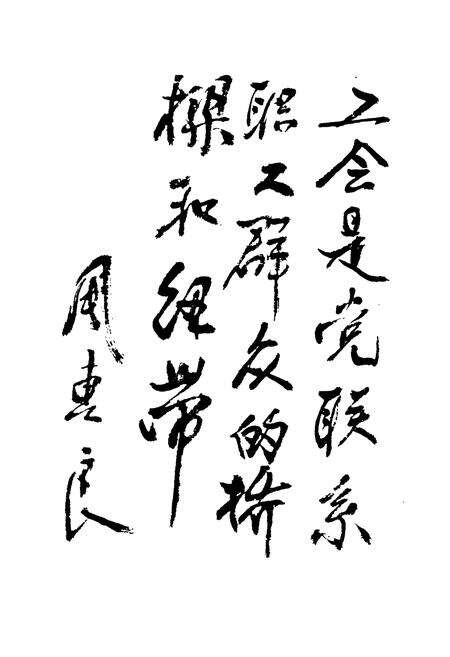 工会是党联系
职工群众的桥
梁和纽带
周惠良